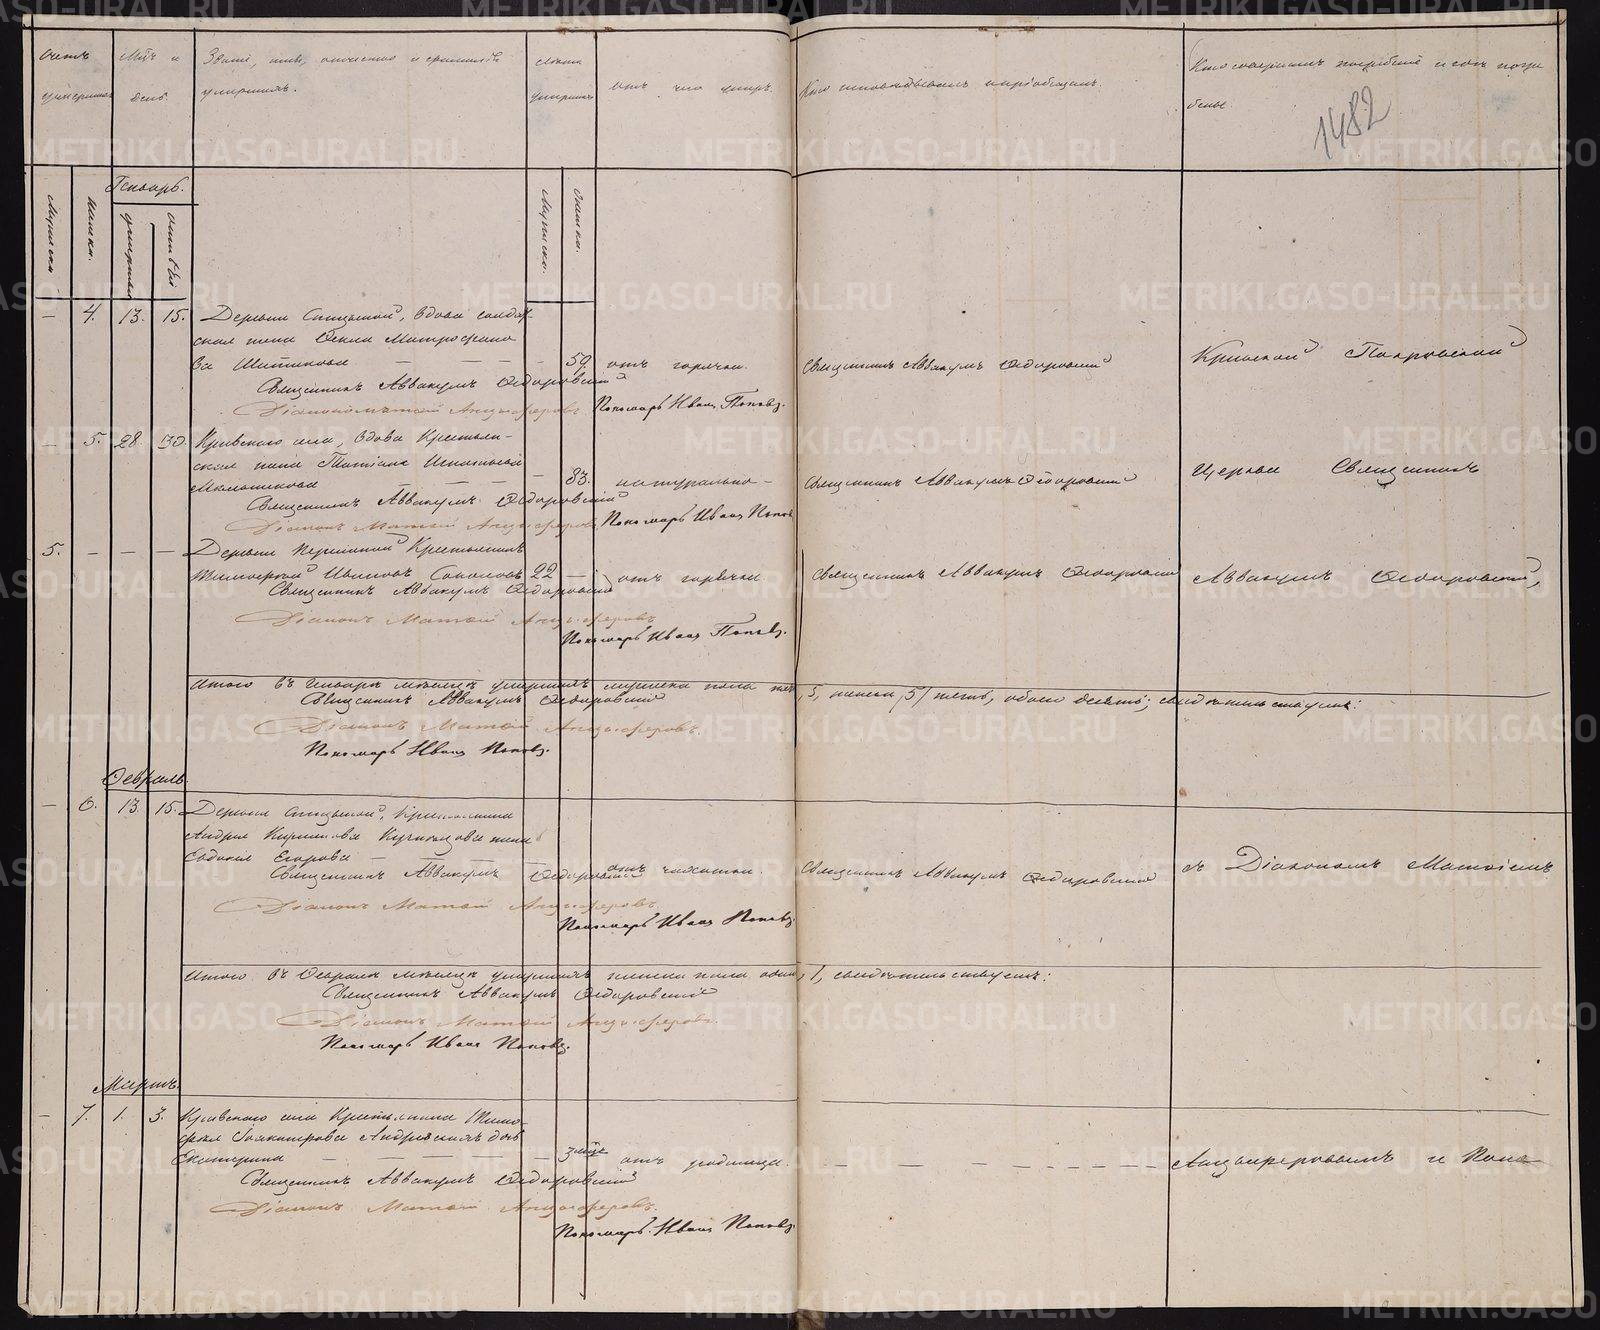 Счетъ умершихъ
Мцъ и день.
Званіе, имя, отчество и фамилія умершихъ.
Лѣта умершихъ
отъ чего умеръ.
Кто исповѣдывалъ и пріобщалъ.
Кто совершалъ погребеніе и гдѣ погребены.
1482
Мужеска
Женска.
Генварь.
смерти
погребенія
Мужеска.
Женска.
— 4. 13. 15. Деревни Спицыной, вдова солдат-
ская жена Ѳекла Митрофано-
ва Шитикова — — — 59. отъ горячки. Священникъ Аввакумъ Ѳедоровскій
Кривской Покровской
Священникъ Аввакумъ Ѳедоровскій
Діаконъ Матѳій Анцыферовъ Пономарь Иванъ Поповъ.
— 5. 28. 30. Кривского села, вдова Крестьян-
ская жена Татіана Игнатьева
— — 83. натурально — Священникъ Аввакумъ Ѳедоровскій
церкви Священникъ
Священникъ Аввакумъ Ѳедоровскій
Діаконъ Матѳій Анцыферовъ Пономарь Иванъ Поповъ
5. — — — Деревни Крестьянинъ
Тимоѳей Ивановъ Соколовъ 22 — отъ горячки Священникъ Аввакумъ Ѳедоровскій
Аввакумъ Ѳедоровскій,
Священникъ Аввакумъ Ѳедоровскій
Діаконъ Матѳій Анцыферовъ
Пономарь Иванъ Поповъ.
Итого въ Генварѣ мѣсяцѣ умершихъ мужеска пола пять, 5, женска /5/ пять, обоего десять; свидѣтельствуемъ:
Священникъ Аввакумъ Ѳедоровскій
Діаконъ Матѳій Анцыферовъ.
Пономарь Иванъ Поповъ.
Февраль.
— 6. 13. 15. Деревни Спицыной, Крестьянина
Андрея Кирилова жена
Евдокия Егорова — — — — отъ чахотки. Священникъ Аввакумъ Ѳедоровскій
съ Діакономъ Матѳіемъ
Священникъ Аввакумъ Ѳедоровскій
Діаконъ Матѳій Анцыферовъ.
Пономарь Иванъ Поповъ.
Итого въ Февралѣ мѣсяцѣ умершихъ женска пола одна, 1, свидѣтельствуемъ:
Священникъ Аввакумъ Ѳедоровскій
Діаконъ Матѳій Анцыферовъ.
Пономарь Иванъ Поповъ.
Мартъ.
— 7. 1. 3. Кривского села Крестьянина Тимо-
ѳея дочь
Екатерина — — — — отъ родимца. — — — — — — — — —
Анцыферовымъ и Поно-
Священникъ Аввакумъ Ѳедоровскій
Діаконъ Матѳій Анцыферовъ.
Пономарь Иванъ Поповъ.
METRIKI.GASO-URAL.RU